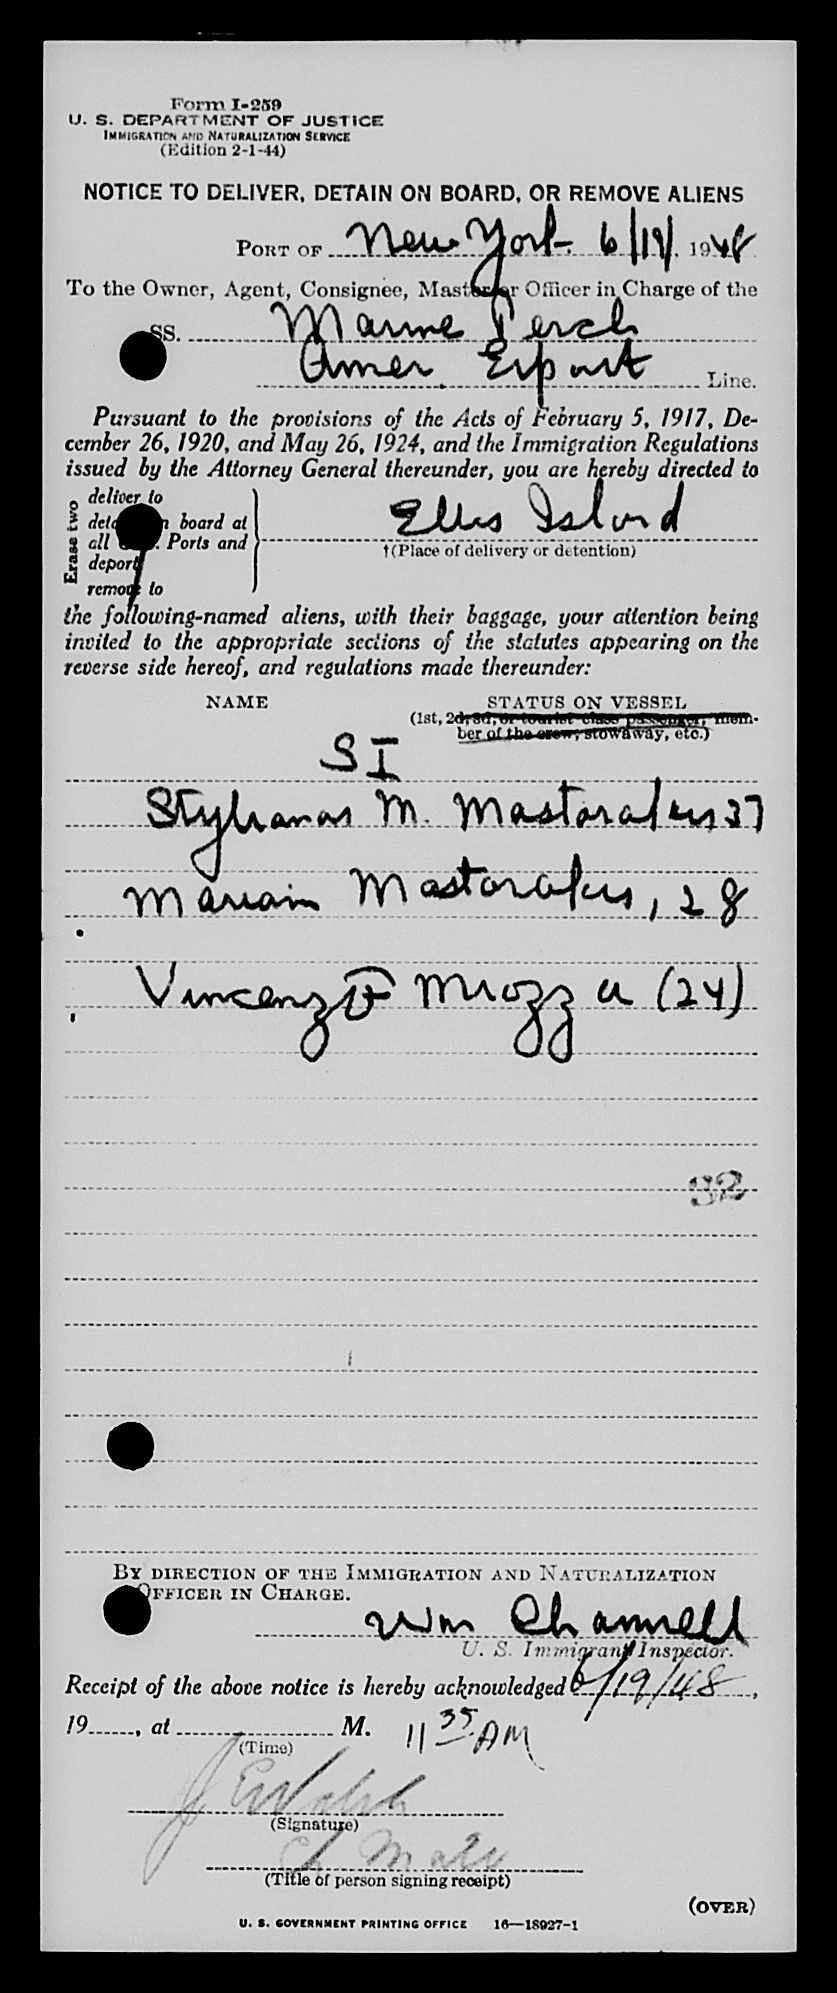 Form I-259
U. S. DEPARTMENT OF JUSTICE
IMMIGRATION AND NATURALIZATION SERVICE
(Edition 2-1-44)
NOTICE TO DELIVER, DETAIN ON BOARD, OR REMOVE ALIENS
PORT OF New York 6/19/ 1948
To the Owner, Agent, Consignee, Master or Officer in Charge of the
SS. Marine Perch
Amer. Export Line.
Pursuant to the provisions of the Acts of February 5, 1917, De-
cember 26, 1920, and May 26, 1924, and the Immigration Regulations
issued by the Attorney General thereunder, you are hereby directed to
Erase two
deliver to
board at
all Ports and
deport
remove to
Ellis Island
†(Place of delivery or detention)
the following-named aliens, with their baggage, your attention being
invited to the appropriate sections of the statutes appearing on the
reverse side hereof, and regulations made thereunder:
NAME STATUS ON VESSEL
(1st, 2d, 3d, or tourist class passenger, mem-
ber of the crew, stowaway, etc.)
SI
Stylianos M. Mastorakis 37
Mastorakis, 28
(24)
32
BY DIRECTION OF THE IMMIGRATION AND NATURALIZATION
OFFICER IN CHARGE.
Wm Channell
U. S. Immigrant Inspector.
Receipt of the above notice is hereby acknowledged 6/19/48,
19......, at M. 11 35 AM
(Time)
J E Walsh
(Signature)
Ch Mate
(Title of person signing receipt)
(OVER)
U. S. GOVERNMENT PRINTING OFFICE 16—18927-1